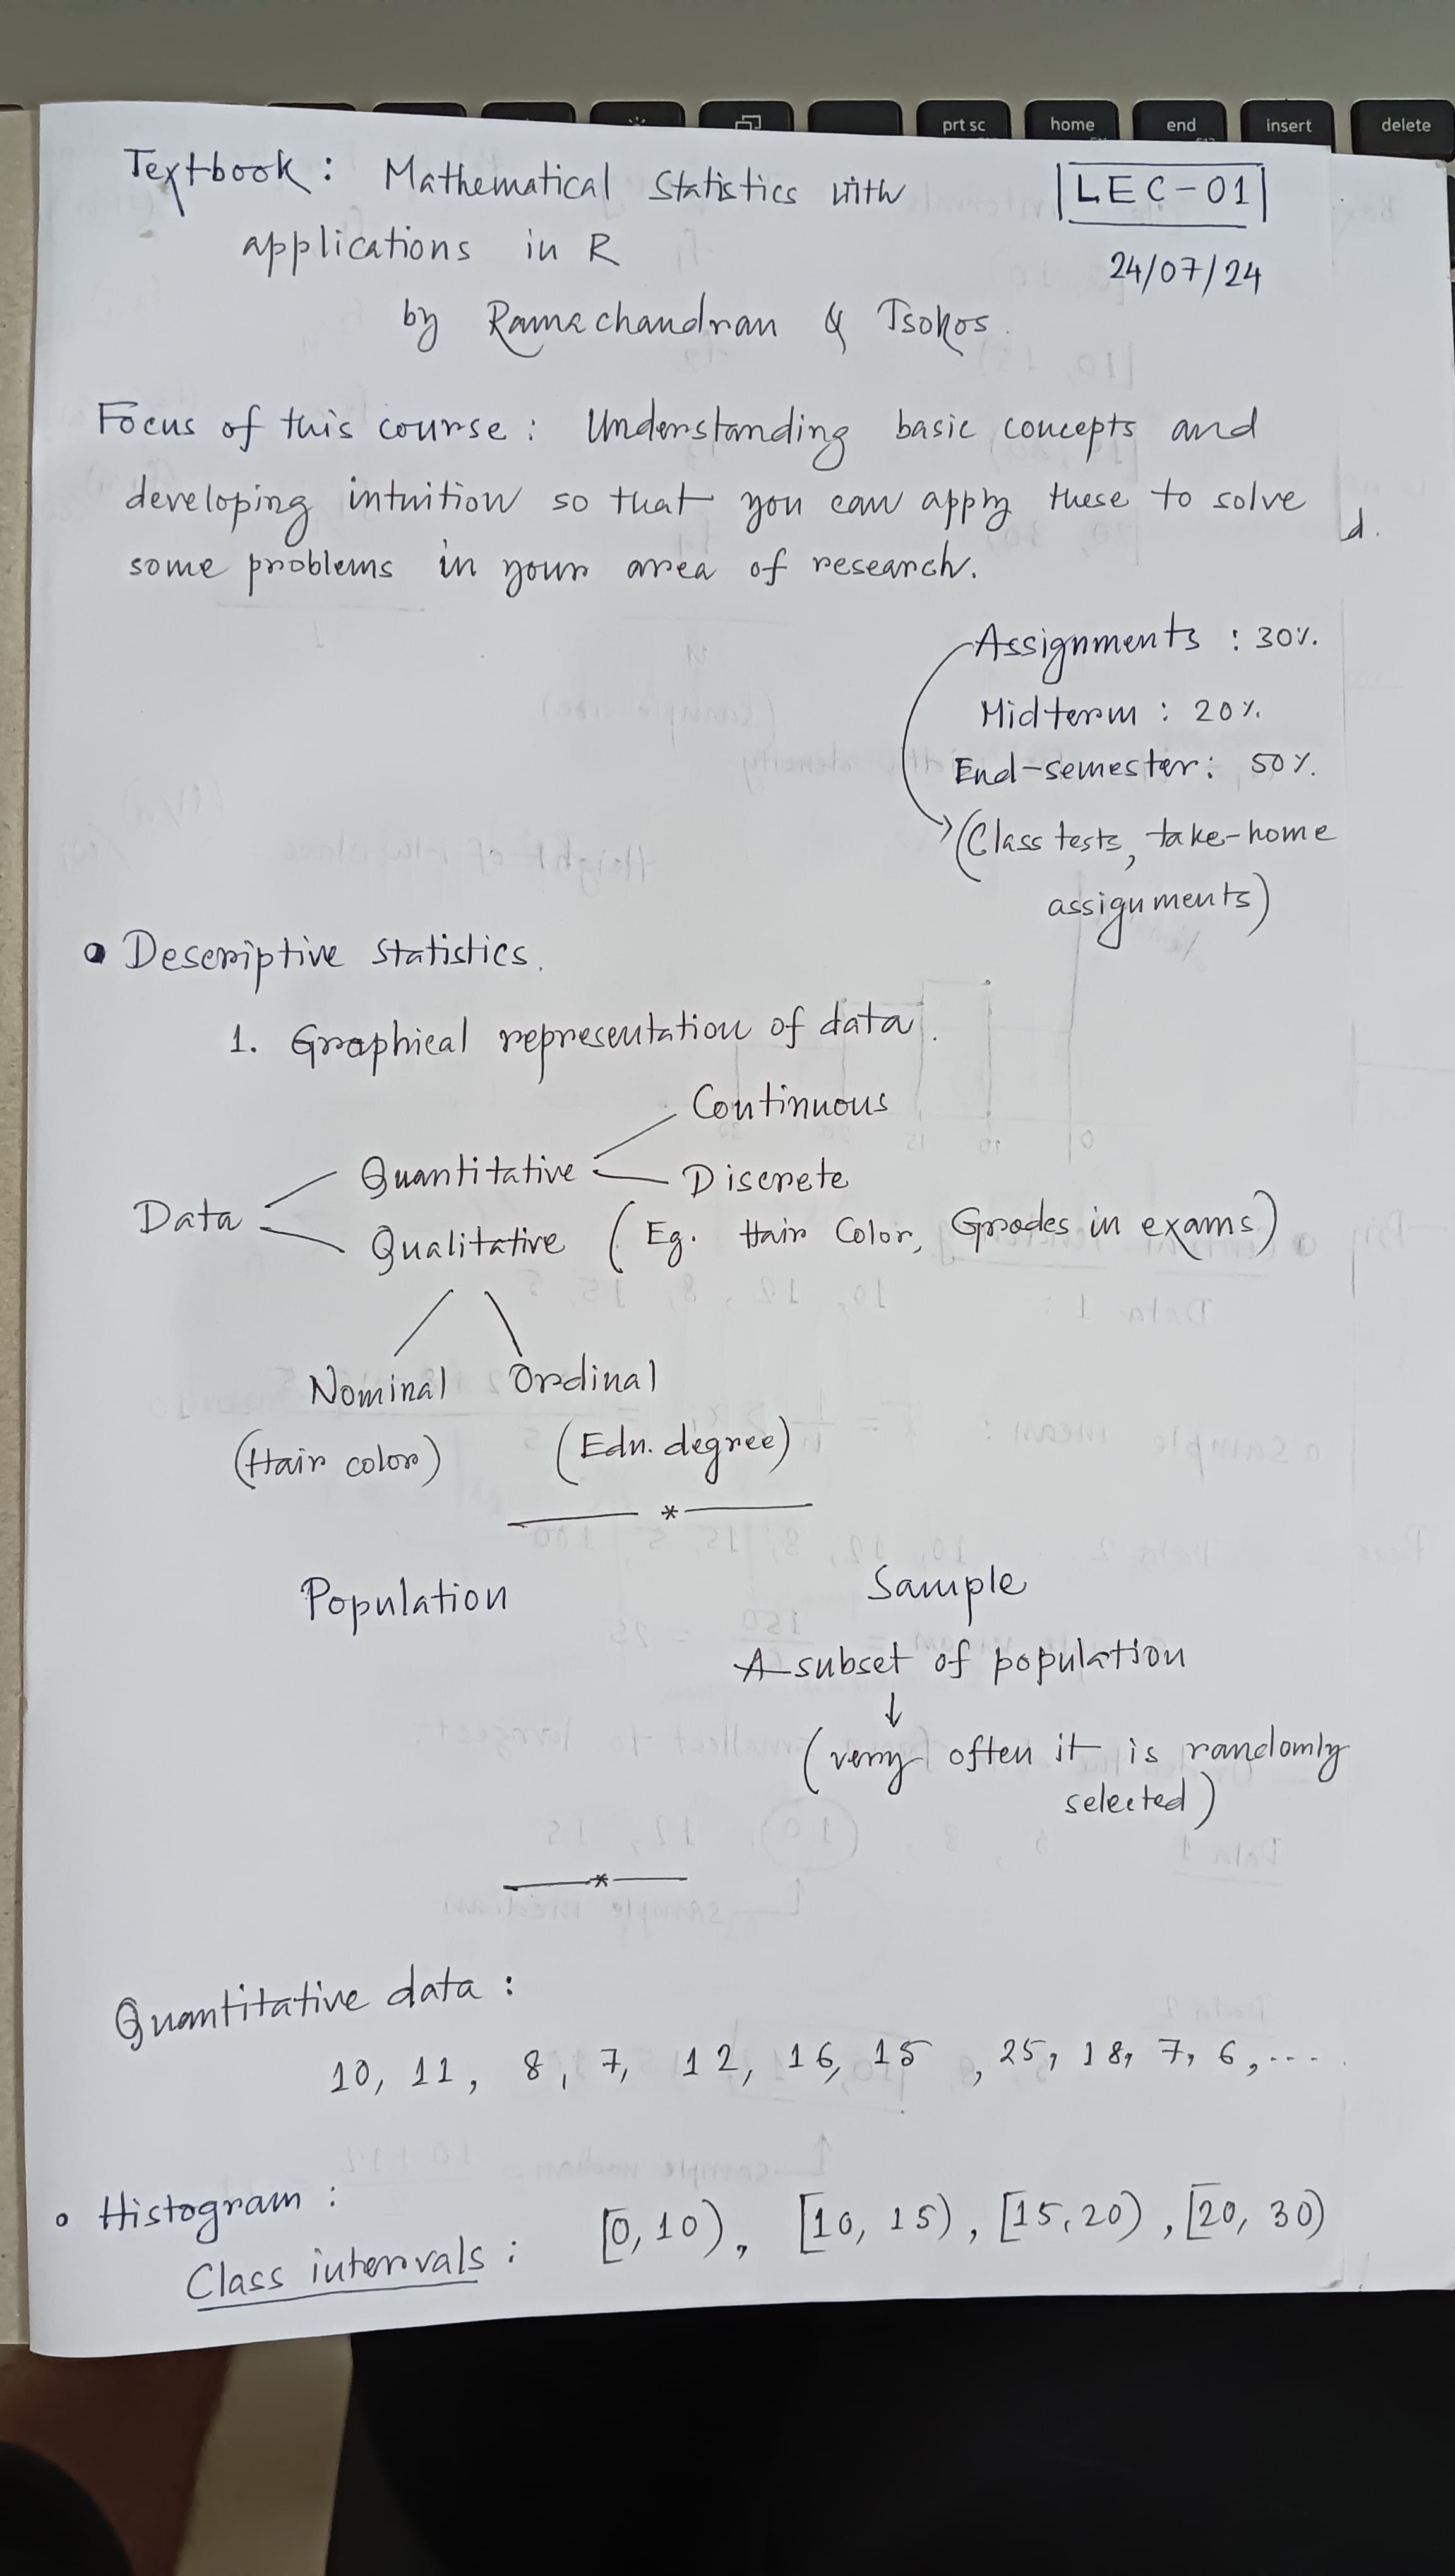 prt sc home end insert delete
Textbook: Mathematical Statistics with
applications in R
by Ramachandran & Tsokos.
LEC-01
24/07/24
Focus of this course: Understanding basic concepts and
developing intuition so that you can apply these to solve
some problems in your area of research.
d.
Assignments : 30%.
Midterm : 20%.
End-semester: 50%.
(Class tests, take-home
assignments)
Descriptive Statistics.
1. Graphical representation of data.
Continuous
Quantitative
Discrete
Data
Qualitative (Eg. Hair Color, Grades in exams)
Nominal Ordinal
(Hair color) (Edn. degree)
*
Population Sample
A subset of population
↓
(very often it is randomly
selected)
*
Quantitative data :
10, 11, 8, 7, 12, 16, 15, 25, 18, 7, 6, ....
Histogram :
Class intervals : [0, 10), [10, 15), [15, 20), [20, 30)